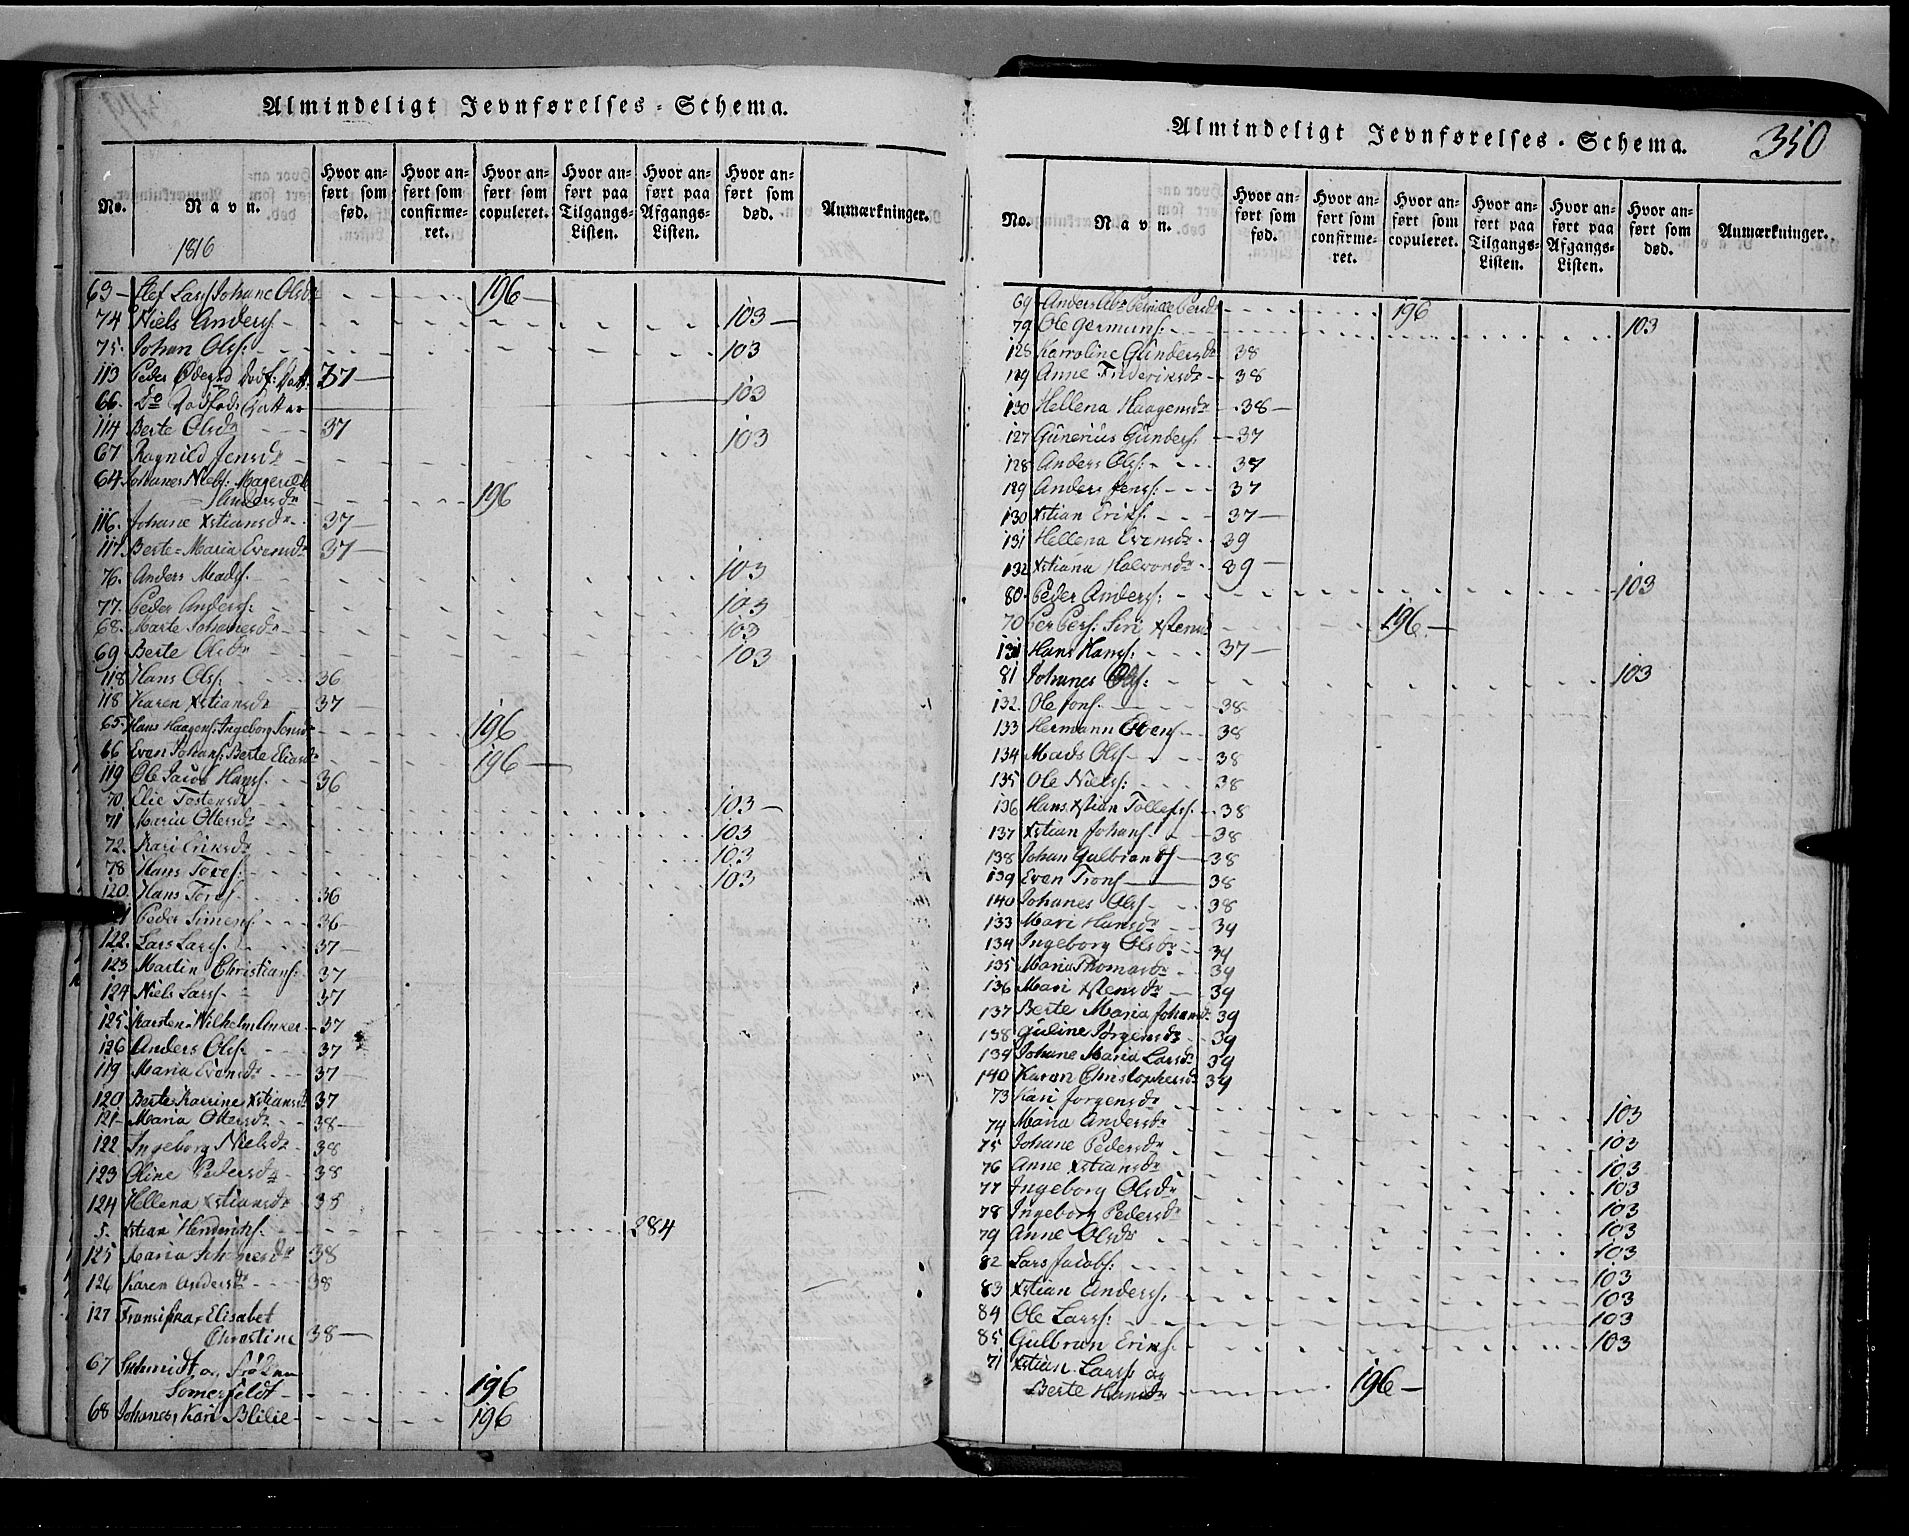 Almindeligt Jevnførelses-Schema.
No. Navn. Hvor anført som fød. Hvor anført som confirmeret. Hvor anført som copuleret. Hvor anført paa Tilgangs-Listen. Hvor anført paa Afgangs-Listen. Hvor anført som død. Anmærkninger.
1816
63 Lars Johane Olsdr 196
74 Niels Anders. 103
75 Johan Ols: 103
113 Peder 37
66. Do 103
114 Berte Olsdr 37
67 Ragnild Jensdr 103
64 Johanes Niels:
Andersdr 196
116. Johane Xstiansdr 37
117 Berte Maria Evensdr 37
76. Anders Mads. 103
77. Peder Anders: 103
68. Marte Johanesdr 103
69 Berte Olsdr 103
118 Hans Ols: 36
118 Karen Xstiansdr 37
65. Hans Haagens: Ingeborg Jensdr 196
66 Even Johans: Berte Eliasdr 196
119 Ole Jacob Hans. 36
70 Elie Tostensdr 103
71 Maria Ottersdr 103
72. Kari Eriksdr 103
78 Hans Tores: 103
120 Hans Tores. 36
121 Peder Simens. 36
122. Lars Lars. 37
123 Martin Christians: 37
124 Niels Lars. 37
125 Karsten Wilhelm Anker 37
126 Anders Ols. 37
119 Maria Evensdr 37
120 Berte Karrine Xstiansdr 37
121 Maria Ottersdr 38
122 Ingeborg Nielsdr 38
123 Oline Pedersdr 38
124 Hellena Xstiansdr 38
5. Xstian Hendrichs. 284
125 Maria Johanesdr 38
126 Karen Andersdr 38
127 Fransiska Elisabet
Christine 38
67 Schmidt og Frøken
Somerfeldt 196
68 Johanes, Kari Blilie 196
350
Almindeligt Jevnførelses-Schema.
No. Navn. Hvor anført som fød. Hvor anført som confirmeret. Hvor anført som copuleret. Hvor anført paa Tilgangs-Listen. Hvor anført paa Afgangs-Listen. Hvor anført som død. Anmærkninger.
69 Anders Persdr 196
79 Ole Germuns. 103
128 Karroline Gundersdr 38
129 Anne Frideriksdr 38
130 Hellena Haagensdr 38
127 Gunerius Gunders. 37
128 Anders Ols: 37
129 Anders Jens: 37
130 Xstian Eriks. 37
131 Hellena Evensdr 39
132 Xstiana Halvorsdr 39
80. Peder Anders: 103
70 Per Pers: Siri Xstensdr 196
131 Hans Hans: 37
81 Johanes Ols: 103
132. Ole Jons. 38
133 Hermann Evens 38
134 Mads Ols. 38
135 Ole Niels: 38
136 Hans Xstian Tollefs: 38
137 Xstian Johans. 38
138 Johan Gulbrands 38
139 Even Trons 38
140 Johanes Ols. 38
133 Mari Hansdr 39
134 Ingeborg Olsdr 39
135 Maria Thomasdr 39
136 Mari Xstensdr 39
137 Berte Maria Johansdr 39
138 Guline Jørgensdr 39
139 Johane Maria Larsdr 39
140 Karen Christophersdr 39
73 Kari Jorgensdr 103
74 Maria Andersdr 103
75 Johane Pedersdr 103
76 Anne Xstiansdr 103
77 Ingeborg Olsdr 103
78 Ingeborg Pedersdr 103
79 Anne Olsdr 103
82 Lars Jacobs: 103
83 Xstian Anders. 103
84 Ole Lars: 103
85 Gulbran Eriks. 103
71 Xstian Lars. og
Berte Hansdr 196